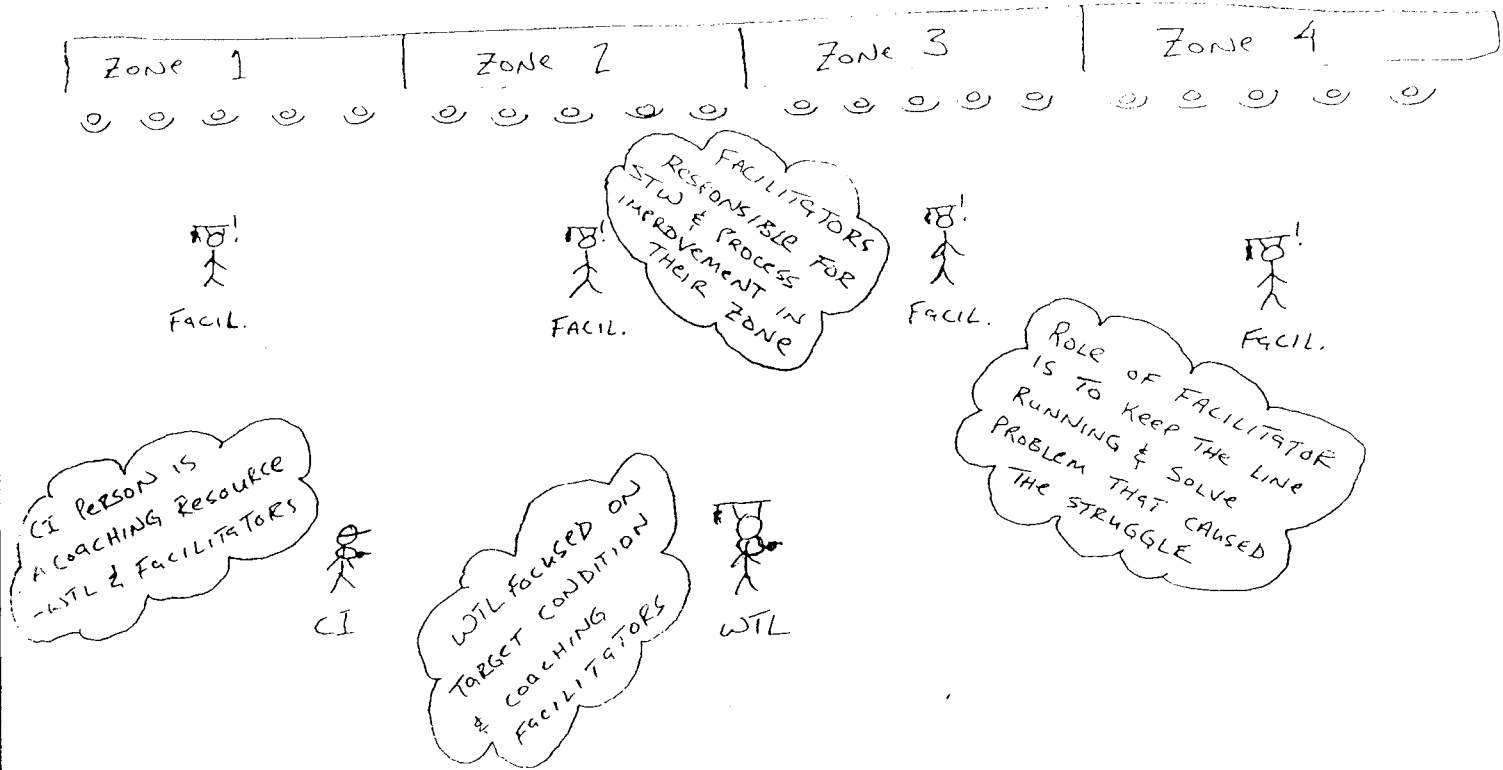 Zone 1
Zone 2
Zone 3
Zone 4
FACILITATORS
RESPONSIBLE FOR
STW & PROCESS
IMPROVEMENT IN
THEIR ZONE
!
!
!
!
FACIL.
FACIL.
FACIL.
FACIL.
ROLE OF FACILITATOR
IS TO KEEP THE LINE
RUNNING & SOLVE
PROBLEM THAT CAUSED
THE STRUGGLE
CI PERSON IS
A COACHING RESOURCE
-WTL & FACILITATORS
CI
WTL FOCUSED ON
TARGET CONDITION
& COACHING
FACILITATORS
WTL